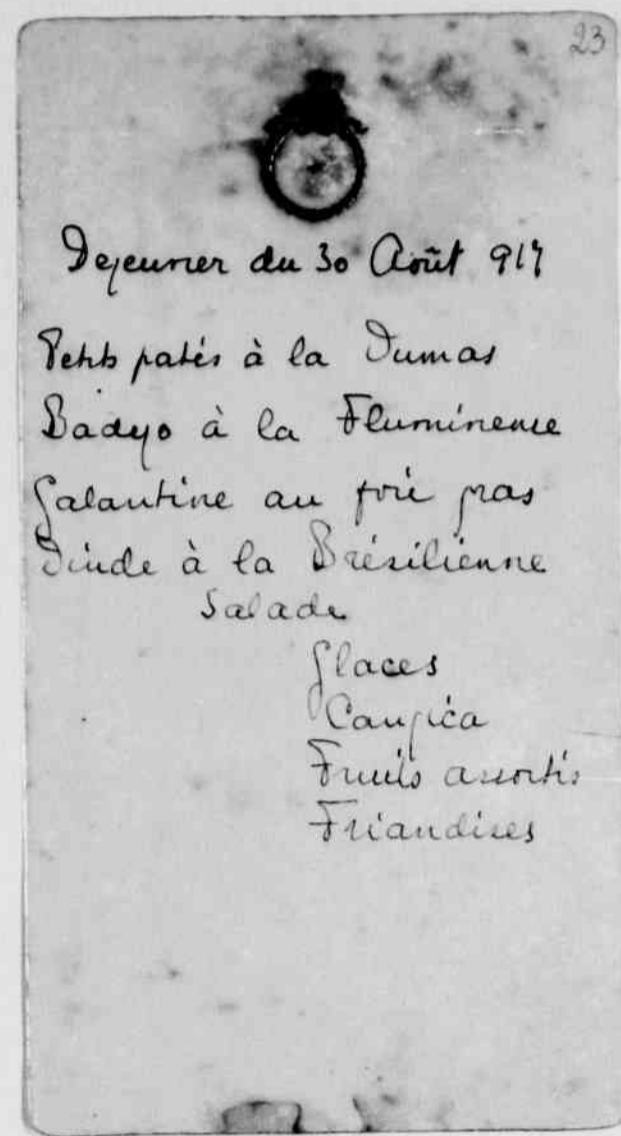 23
Dejeuner du 30 Août 917
Petits patés à la Dumas
Badejo à la Fluminense
Galantine au foie gras
Dinde à la Brésilienne
Salade
Glaces
Canjica
Fruits assortis
Friandises